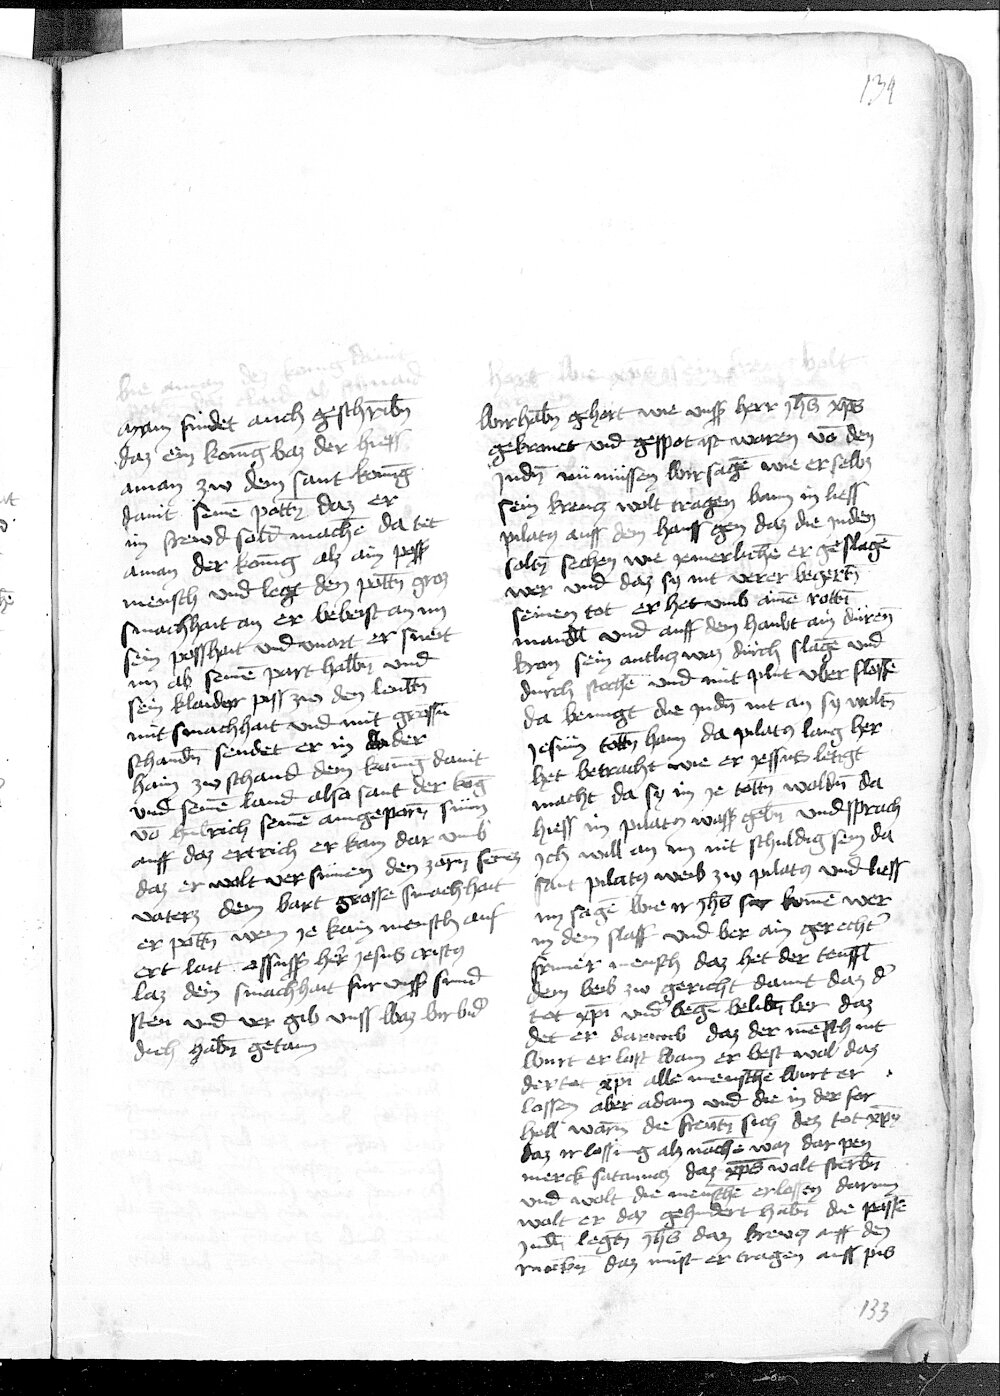 134
man findet auch geschribn̄
daz ein koniḡ waz der hiess
aman zw dem sant koniḡ
dauit seine potn̄ daz er
im frewd solt mache da tet
aman der koniḡ als ain poss
mensch und legt den potn̄ gros
smachhait an er beweist an im
sein posshait und unart er sneit
im ab seinē part halbn̄ und
sein klaider piss zw den lendn̄
mit smachhait und mit grossn̄
schandn̄ sendet er in wider
haim zw schand dem koniḡ dauit
und seinē land also sant der kög
vō himlrich seinē aingeporn̄ sun
auff daz ertrich er kam dar umb
daz er wolt versünen den zorn seines
vaterz dem wart grosse smachhait
er potn̄ wen je kain mensch auf
ert lait o sussz her jesus cristus
laz dein smachhait fur unss sind
sten und ver gib unss waz wir wid
dich habn̄ getain
Wir habn̄ gehort wie unss herr jhs xps
gekronet und gespotist waren vō den
judn̄ nu müssen wir sagē wie er selbs
sein kreuz wolt tragen wann in liess
pilatus auss dem hauss gen daz die juden
soltn̄ sechen wie jemerlichē er geslagē
wer und daz sy nit verer begertn̄
seinen tot er het umb ainē rottn̄
mandl und auff dem haubt ain dürren
kron sein antlicz waz durch slagē und
durch stochē und mit plut uber flossē
da benugt die judn̄ nit an sy woltn̄
jesum tottn̄ hann da pilatus lang her
het betracht wie er jessus ledigt
macht da sy in je tottn̄ woldn̄ da
hiess im pilatus wasser gebn̄ und sprach
ich will an im nit schuldig sein da
sant pilatus weib zw pilatus und liess
im sagē wie ir jhs fur kumē wer
in dem slaff und wer ain gerecht'
frumer mensch daz het der teuffl
dem weib zw gericht damit daz d'
tot xpi und' wegē belibn̄ wer daz
det er darumb daz der mensch nit
wurt er lost wann er west wol daz
der tot xpi alle menschē wurt er
lossen aber adam und die in der for
hell warn̄ die freutn̄ sich dez tot xpi
daz ir lossung als nachē waz dar pey
merck satanas daz xps wolt sterbn̄
und wolt die menschē erlossen darum
wolt er daz gehindert habn̄ die possē
judn̄ legtn̄ jhs daz kreucz auff den
ruckn̄ daz must er tragen auss pis
133